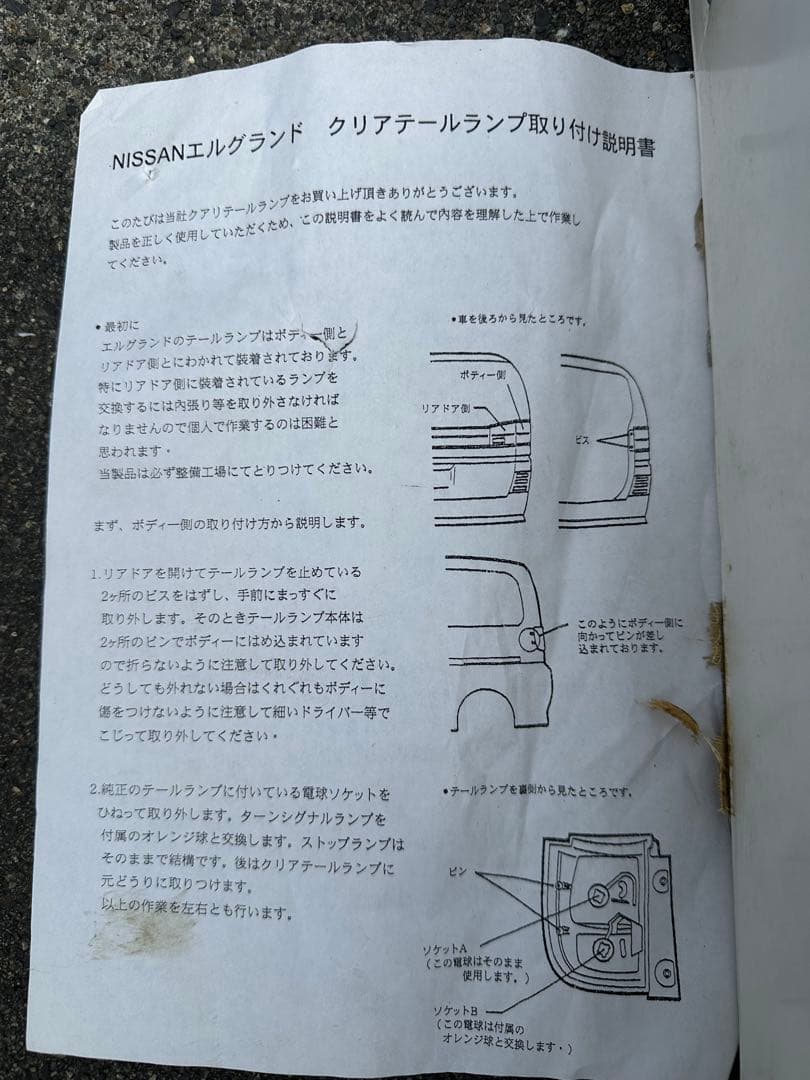 NISSANエルグランド　クリアテールランプ取り付け説明書
このたびは当社クアリテールランプをお買い上げ頂きありがとうございます。
製品を正しく使用していただくため、この説明書をよく読んで内容を理解した上で作業し
てください。
●最初に
エルグランドのテールランプはボディー側と
リアドア側とにわかれて装着されております。
特にリアドア側に装着されているランプを
交換するには内張り等を取り外さなければ
なりませんので個人で作業するのは困難と
思われます・
当製品は必ず整備工場にてとりつけてください。
●車を後ろから見たところです。
ボディー側
リアドア側
ビス
まず、ボディー側の取り付け方から説明します。
1.リアドアを開けてテールランプを止めている
2ヶ所のビスをはずし、手前にまっすぐに
取り外します。そのときテールランプ本体は
2ヶ所のピンでボディーにはめ込まれています
ので折らないように注意して取り外してください。
どうしても外れない場合はくれぐれもボディーに
傷をつけないように注意して細いドライバー等で
こじって取り外してください・
このようにボディー側に
向かってピンが差し
込まれております。
2.純正のテールランプに付いている電球ソケットを
ひねって取り外します。ターンシグナルランプを
付属のオレンジ球と交換します。ストップランプは
そのままで結構です。後はクリアテールランプに
元どうりに取りつけます。
以上の作業を左右とも行います。
●テールランプを裏側から見たところです。
ピン
ソケットA
(この電球はそのまま
使用します。)
ソケットB
(この電球は付属の
オレンジ球と交換します・)